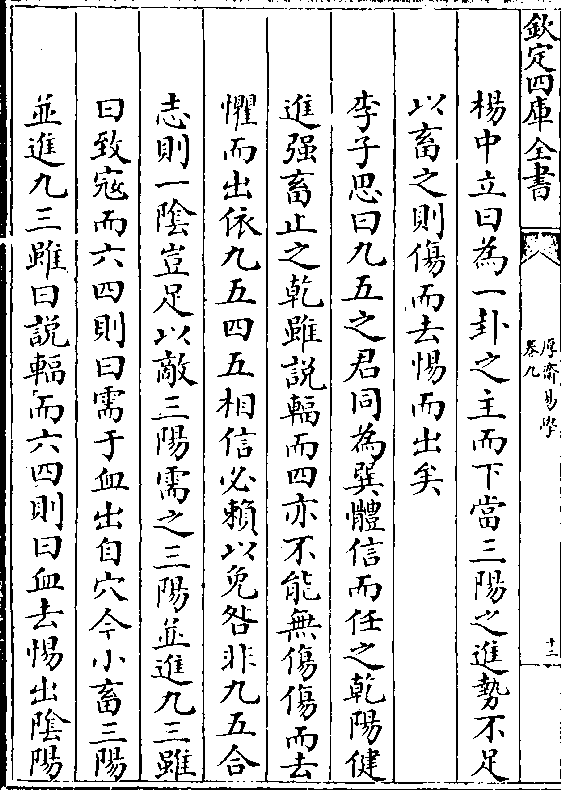 欽定四庫全書
厚齋易學
卷九
十二
楊中立曰為一卦之主而下當三陽之進勢不足
以畜之則傷而去惕而出矣
李子思曰九五之君同為巽體信而任之乾陽健
進强畜止之乾雖説輻而四亦不能無傷傷而去
懼而出依九五四五相信必賴以免咎非九五合
志則一陰豈足以敵三陽需之三陽並進九三雖
曰致寇而六四則曰需于血出自穴今小畜三陽
並進九三雖曰説輻而六四則曰血去惕出陰陽